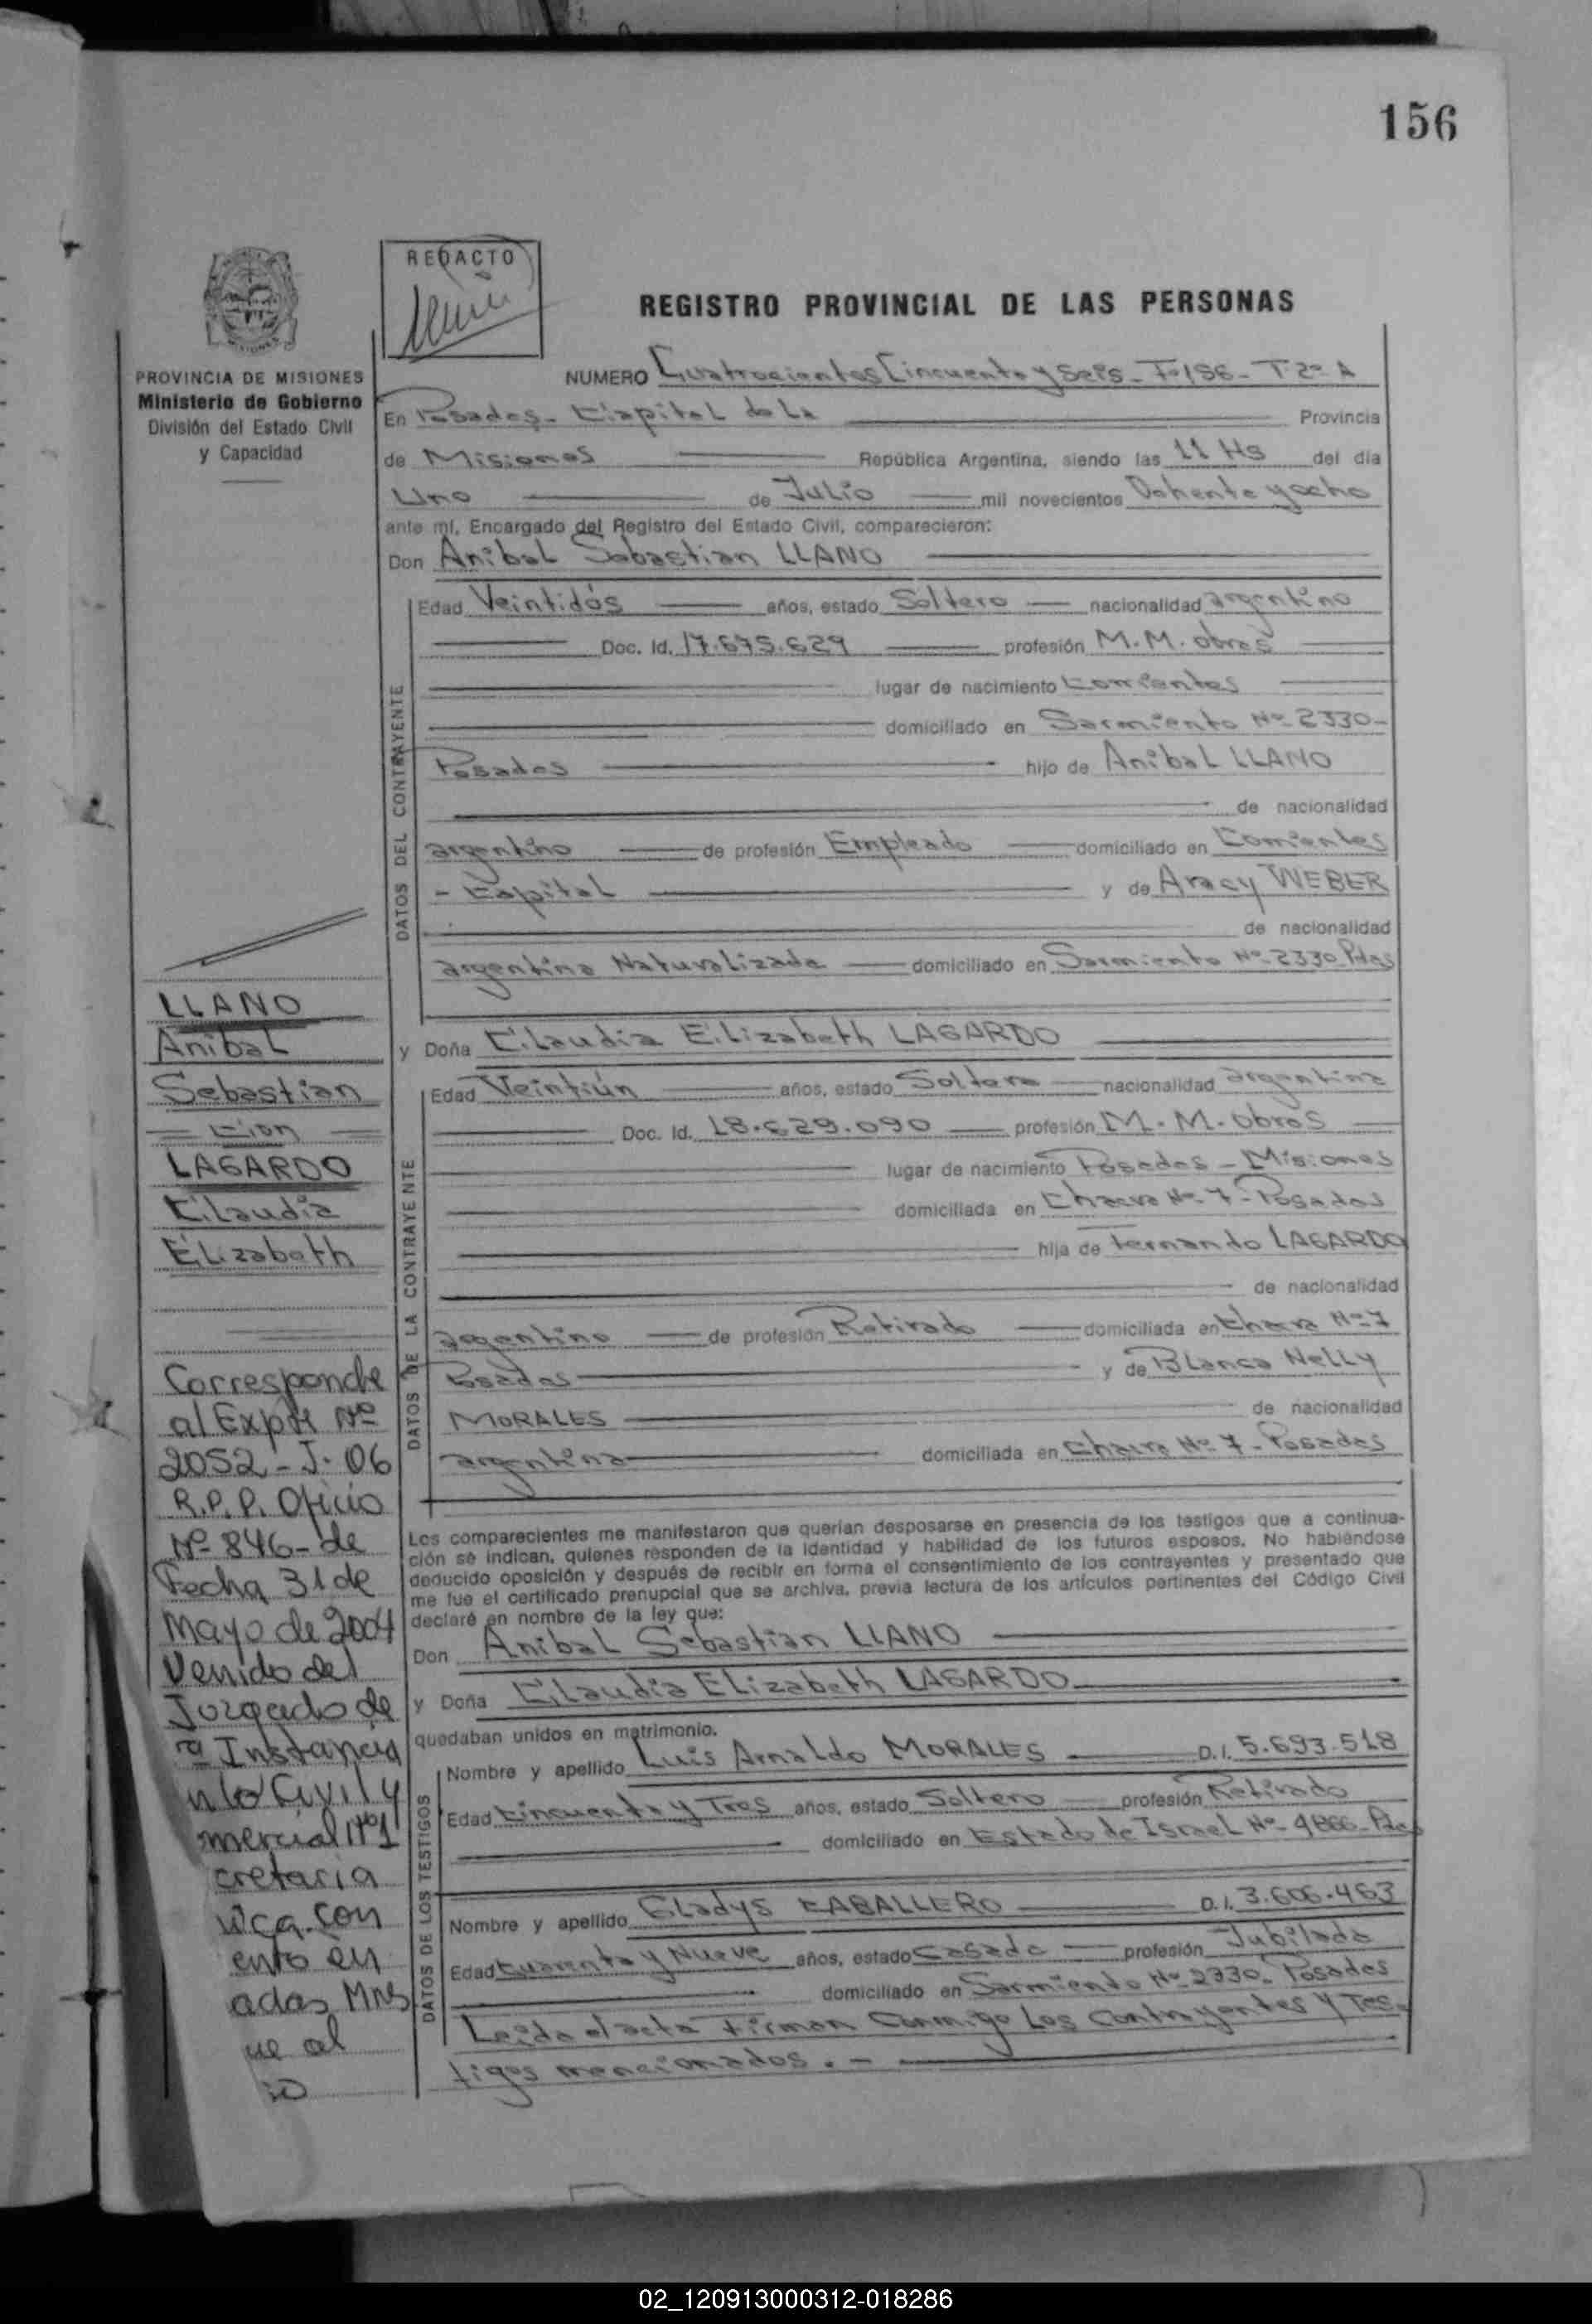 156
REDACTO
REGISTRO PROVINCIAL DE LAS PERSONAS
MISIONES
PROVINCIA DE MISIONES
Ministerio de Gobierno
División del Estado Civil
y Capacidad
NUMERO Cuatrocientos Cincuenta y Seis - Fº 156 - T. 2º A
En Posadas - Capital de la Provincia
de Misiones República Argentina, siendo las 11 Hs del día
Uno de Julio mil novecientos Ochenta y ocho
ante mí, Encargado del Registro del Estado Civil, comparecieron:
Don Anibal Sebastian LLANO
DATOS DEL CONTRAYENTE
Edad Veintidós años, estado Soltero nacionalidad argentino
Doc. Id. 17.675.629 profesión M.M. Obras
lugar de nacimiento Corrientes
domiciliado en Sarmiento Nº 2330-
Posadas hijo de Anibal LLANO
de nacionalidad
argentino de profesión Empleado domiciliado en Corrientes
- Capital y de Aracy WEBER
de nacionalidad
argentina Naturalizada domiciliado en Sarmiento Nº 2330 Pdas
y Doña Claudia Elizabeth LAGARDO
DATOS DE LA CONTRAYENTE
Edad Veintiún años, estado Soltera nacionalidad argentina
Doc. Id. 18.629.090 profesión M.M. Obras
lugar de nacimiento Posadas - Misiones
domiciliada en Chacra Nº 7 - Posadas
hija de Fernando LAGARDO
de nacionalidad
argentino de profesión Retirado domiciliada en Chacra Nº 7
Posadas y de Blanca Nelly
MORALES de nacionalidad
argentina domiciliada en Chacra Nº 7 - Posadas
Los comparecientes me manifestaron que querían desposarse en presencia de los testigos que a continua-
ción se indican, quienes responden de la identidad y habilidad de los futuros esposos. No habiéndose
deducido oposición y después de recibir en forma el consentimiento de los contrayentes y presentado que
me fue el certificado prenupcial que se archiva, previa lectura de los artículos pertinentes del Código Civil
declaré en nombre de la ley que:
Don Anibal Sebastian LLANO
y Doña Claudia Elizabeth LAGARDO
quedaban unidos en matrimonio.
DATOS DE LOS TESTIGOS
Nombre y apellido Luis Arnaldo MORALES D.I. 5.693.518
Edad Cincuenta y Tres años, estado Soltero profesión Retirado
domiciliado en Estado de Israel Nº 4866 - Pdas
Nombre y apellido Gladys CABALLERO D.I. 3.606.463
Edad Cuarenta y Nueve años, estado Casada profesión Jubilada
domiciliado en Sarmiento Nº 2330 - Posadas
Leida el acta firman conmigo Los Contrayentes y Tes-
tigos mencionados . -
LLANO
Anibal
Sebastian
- Con -
LAGARDO
Claudia
Elizabeth
Corresponde
al Expte Nº
2052 - J. 06
R.P.P. Oficio
Nº 846 - de
Fecha 31 de
Mayo de 2004
Venido del
Juzgado de
rª Instancia
n lo Civil y
mercial Nº1
cretaria
ica. con
ento en
adas Mnes
ue al
io
02_120913000312-018286